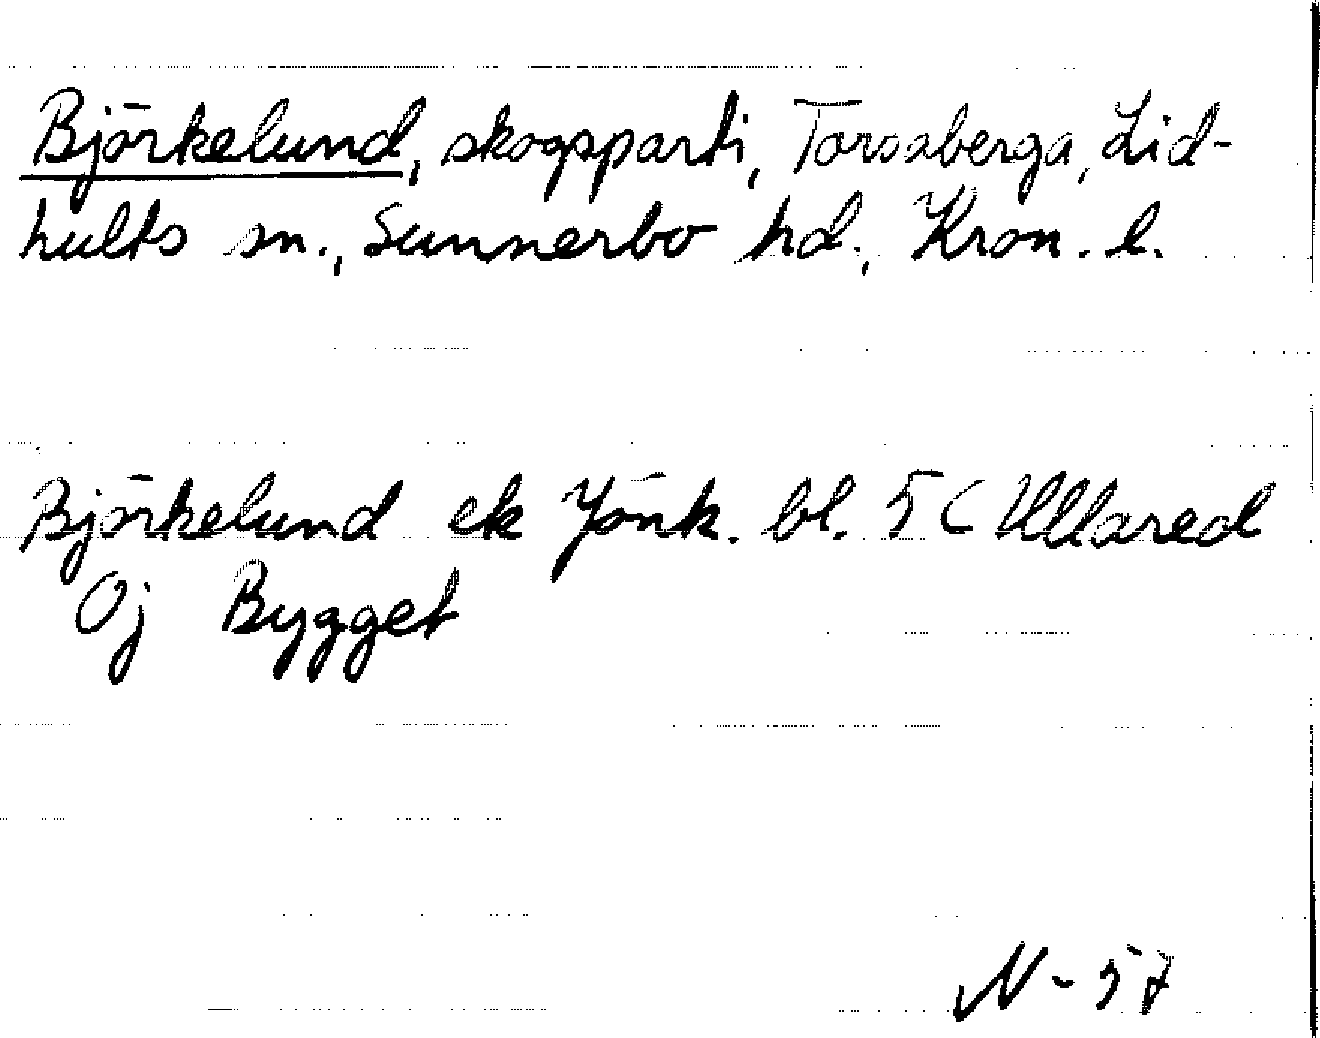 Björkelund, skogsparti, Torsaberga, Lid-
hults sn., Sunnerbo hd., Kron. l.
Björkelund ek Jönk. bl. 5C Ullared
Oj Bygget
N-57